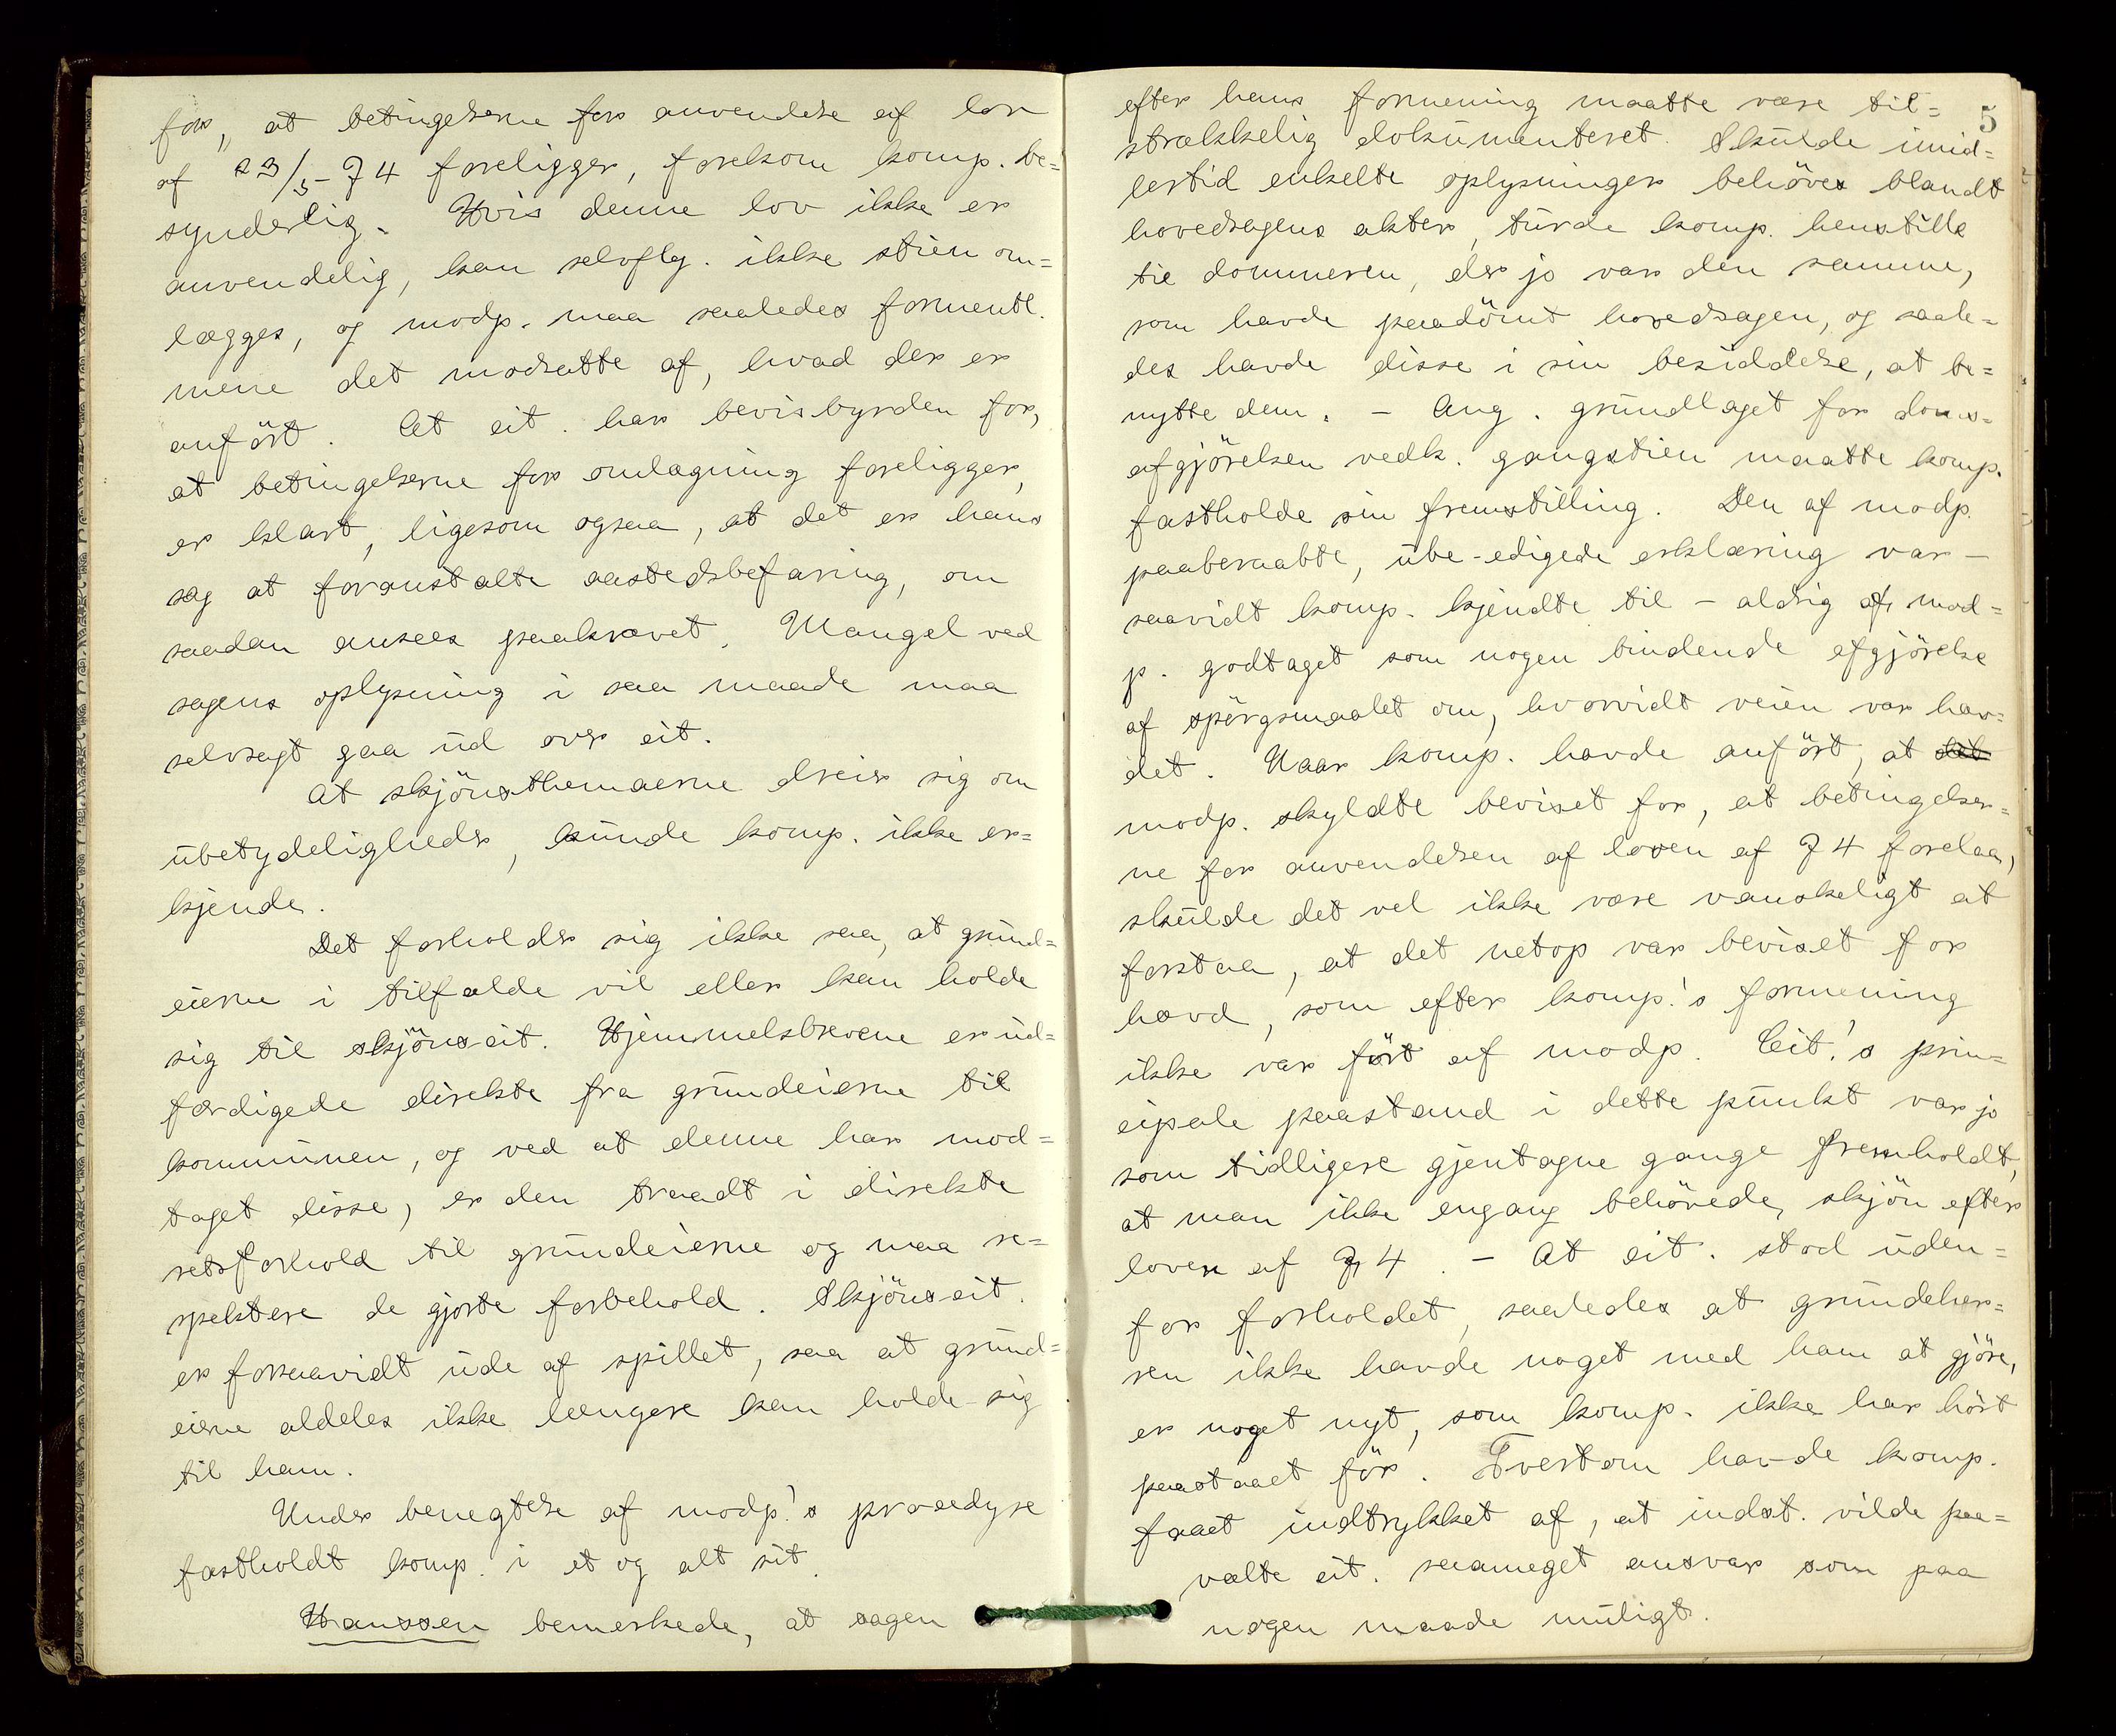 for, at betingelserne for anvendelse af lov
af 23/5-74 foreligger, forekom komp. be=
synderlig. Hvis denne lov ikke er
anvendelig, kan selvflg. ikke stien om=
lægges, og modp. maa saaledes formentl.
mene det modsatte af, hvad der er
anført. At cit. har bevisbyrden for,
at betingelserne for omlægning foreligger,
er klart, ligesom ogsaa, at det er hans
sag at foranstalte aastedsbefaring, om
saadan ansees paakrævet. Mangel ved
sagens oplysning i saa maade maa
selvsagt gaa ud over cit.
At skjønsthemaerne dreier sig om
ubetydeligheder, kunde komp. ikke er=
kjende.
Det forholder sig ikke saa, at grund=
eierne i tilfælde vil eller kan holde
sig til skjønscit. Hjemmelsbrevene er ud=
færdigede direkte fra grundeierne til
kommunen, og ved at denne har mod=
taget disse, er den traadt i direkte
retsforhold til grundeierne og maa re=
spektere de gjorte forbehold. Skjønscit.
er forsaavidt ude af spillet, saa at grund=
eierne aldeles ikke længere kan holde sig
til ham.
Under benegtelse af modp.'s procedyre
fastholdt komp. i et og alt sit.
Hanssen bemerkede, at sagen
5
efter hans formening maatte være til=
strækkelig dokumenteret. Skulde imid=
lertid enkelte oplysninger behøves blandt
hovedsagens akter, turde komp. henstille
til dommeren, der jo var den samme,
som havde paadømt hovedsagen, og saale=
des havde disse i sin besiddelse, at be=
nytte dem. - Ang. grundlaget for doms=
afgjørelsen vedk. gangstien maatte komp.
fastholde sin fremstilling. Den af modp.
paaberaabte, ube-edigede erklæring var -
saavidt komp. kjendte til - aldrig af mod=
p. godtaget som nogen bindende afgjørelse
af spørgsmaalet om, hvorvidt veien var hæv=
det. Naar komp. havde anført, at det
modp. skyldte beviset for, at betingelser=
ne for anvendelsen af loven af 74 forelaa,
skulde det vel ikke være vanskeligt at
forstaa, at det netop var beviset for
hævd, som efter komp.'s formening
ikke var ført af modp. Cit.'s prin=
cipale paastand i dette punkt var jo
som tidligere gjentagne gange fremholdt,
at man ikke engang behøvede skjøn efter
loven af 74. - At cit. stod uden=
for forholdet, saaledes at grundeher=
ren ikke havde noget med ham at gjøre,
er noget nyt, som komp. ikke har hørt
paastaaet før. Tvertom havde komp.
faaet indtrykket af, at indst. vilde paa=
vælte cit. saameget ansvar som paa
nogen maade muligt.